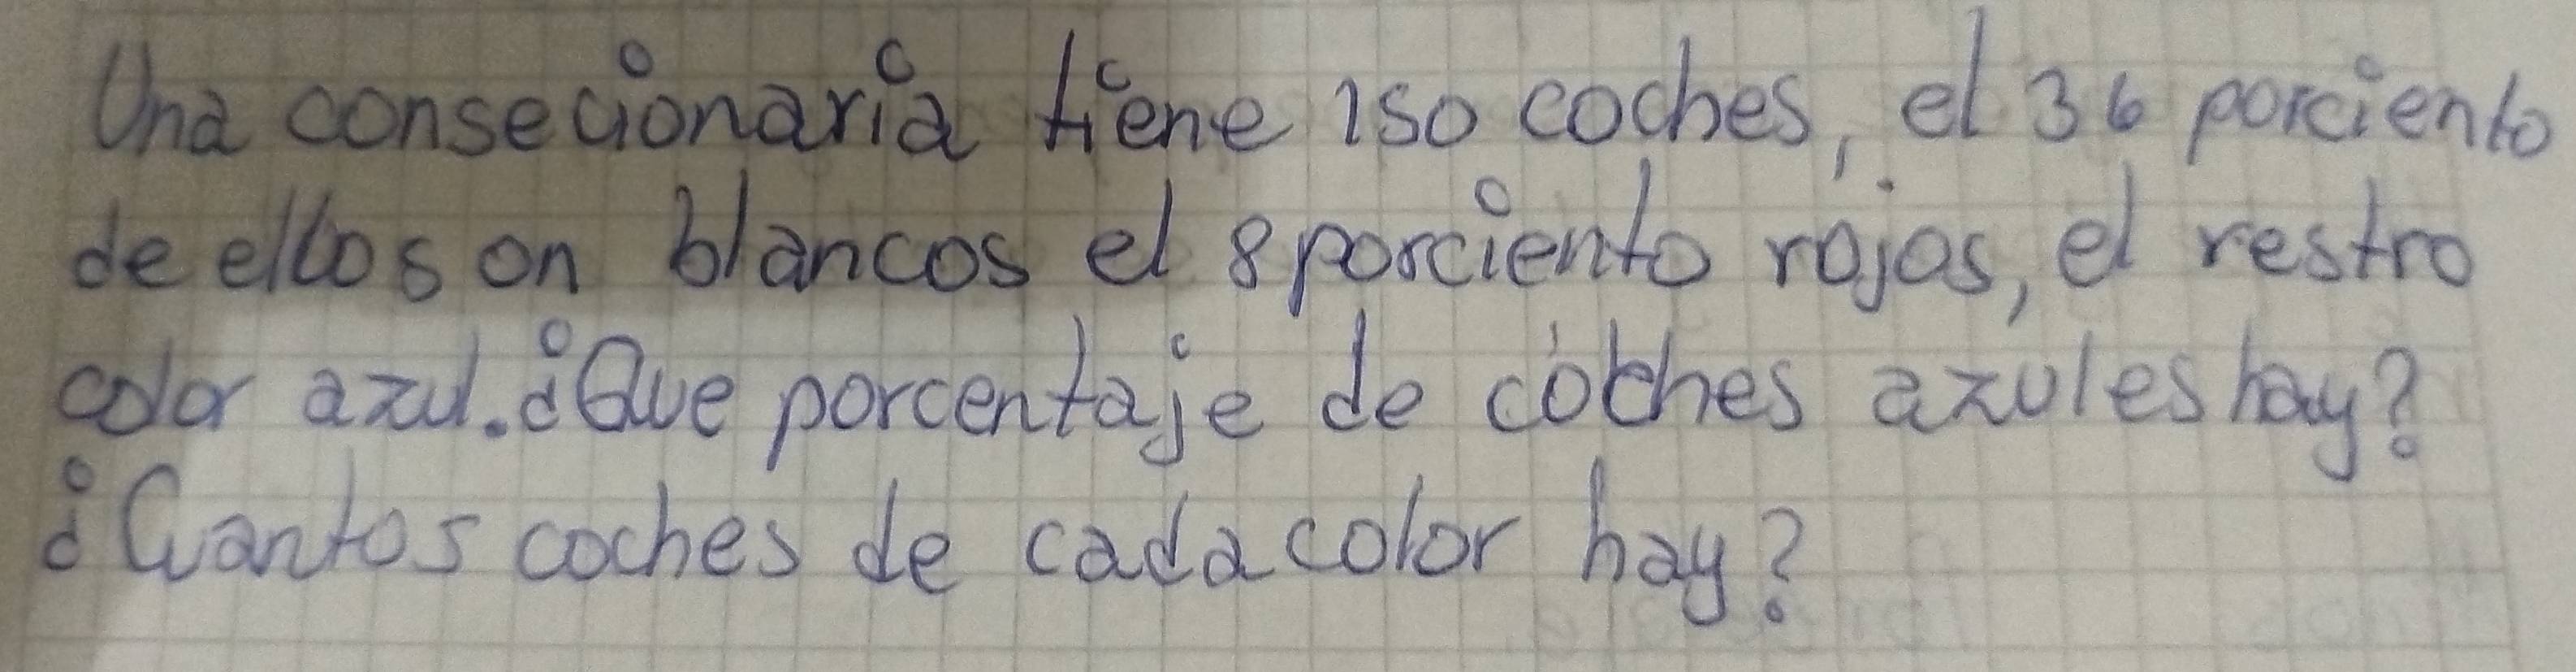 Una consecionaria tiene 150 coches, el 36 porciento
de ellos on blancos el 8 porciento rojos, el restro
color azul. ¿Que porcentaje de coches azules hay?
¿Cuantos coches de cada color hay?